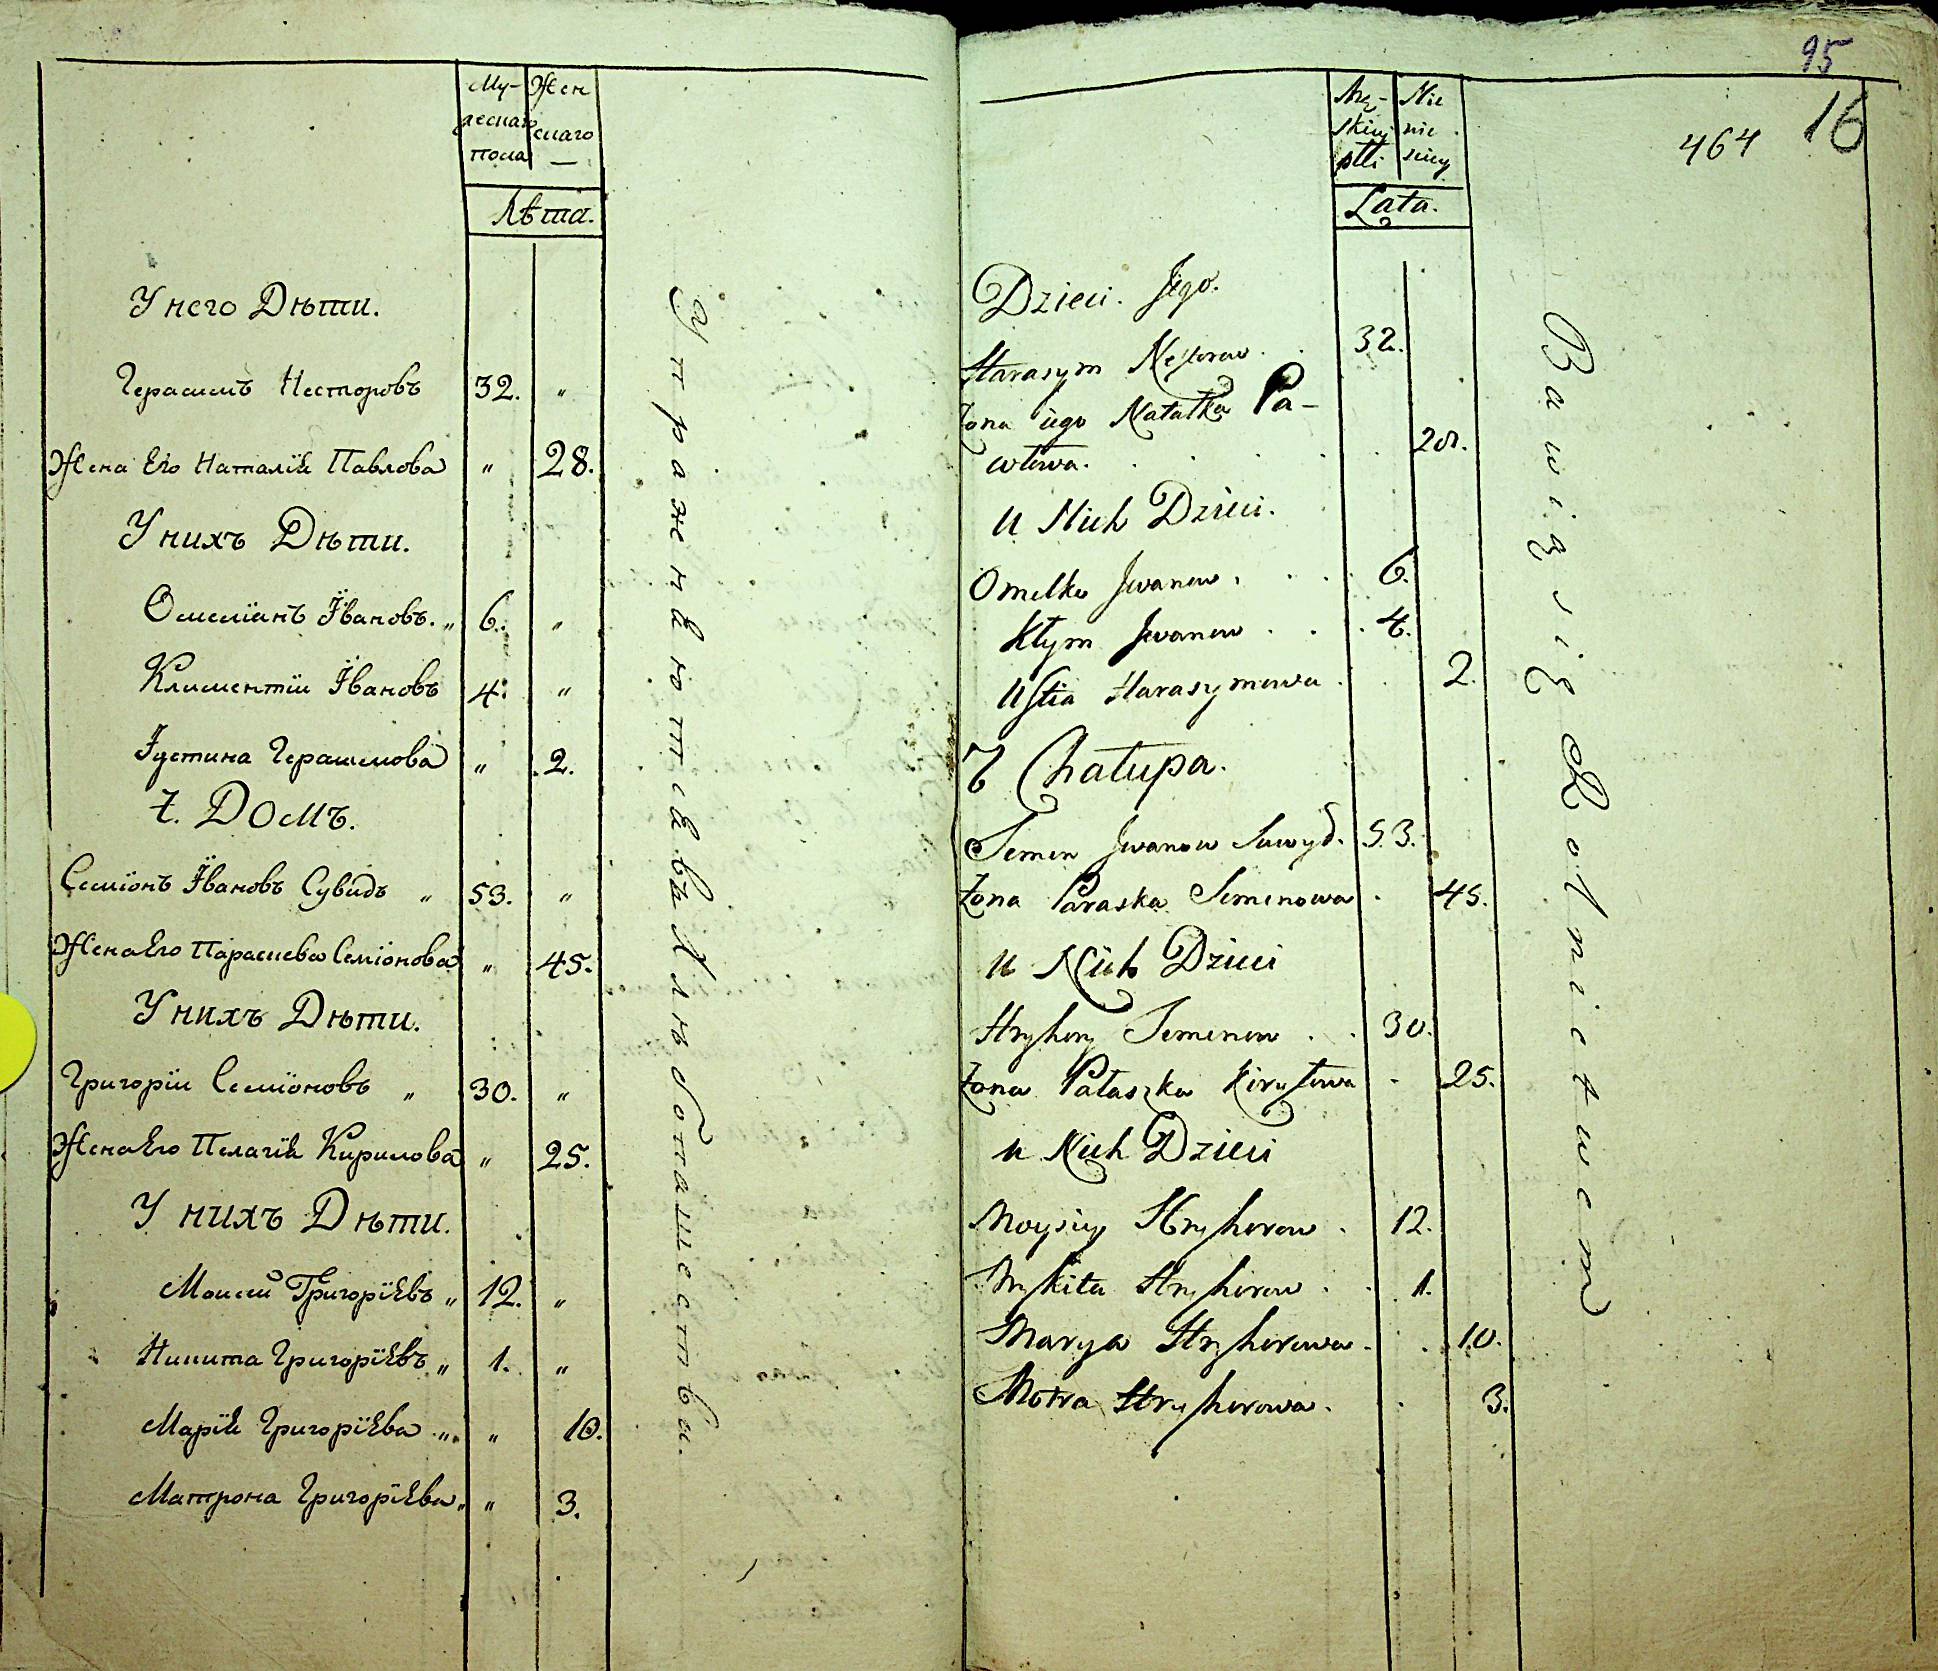 Му-
жескаго
пола
Жен
скаго
Лѣта.
У него Дѣти.
Герасимъ Несторовъ 32. "
Жена Его Наталія Павлова " 28.
У нихъ Дѣти.
Омеліанъ Ивановъ. " 6. "
Климентіи Ивановъ 4. "
Іустина Герасимова " 2.
7. Домъ.
Семіонъ Ивановъ Сувидъ " 53. "
Жена Его Параскева Семіонова " 45.
У нихъ Дѣти.
Григоріи Семіоновъ " 30. "
Жена Его Пелагія Кирилова " 25.
У нихъ Дѣти.
Моисей Григоріевъ " 12. "
Никита Григоріевъ " 1. "
Марія Григоріева " " 10.
Матрона Григоріева " " 3.
Упражняются въ Хлѣбопашествѣ.
95
16
464
Mę-
skiey
płci
Lata.
Dzieci Jego.
Harasym Nestorow 32.
Żona iego Natałka Pa-
włowa. 28.
u Nich Dzieci.
Omelko Jwanow 6.
Kłym Jwanow 4.
Ustia Harasymowa 2.
7 Chałupa.
Semen Jwanow Suwyd. 53.
Żona Paraska Semenowa 45.
u Nich Dzieci
Hryhory Semenow 30.
Żona Pałaszka Kiryłowa 25.
u Nich Dzieci
Moysiey Hryhorow 12.
Mykita Hryhorow 1.
Marya Hryhorowa 10.
Motra Hryhorowa 3.
Bawią się Rolnictwem